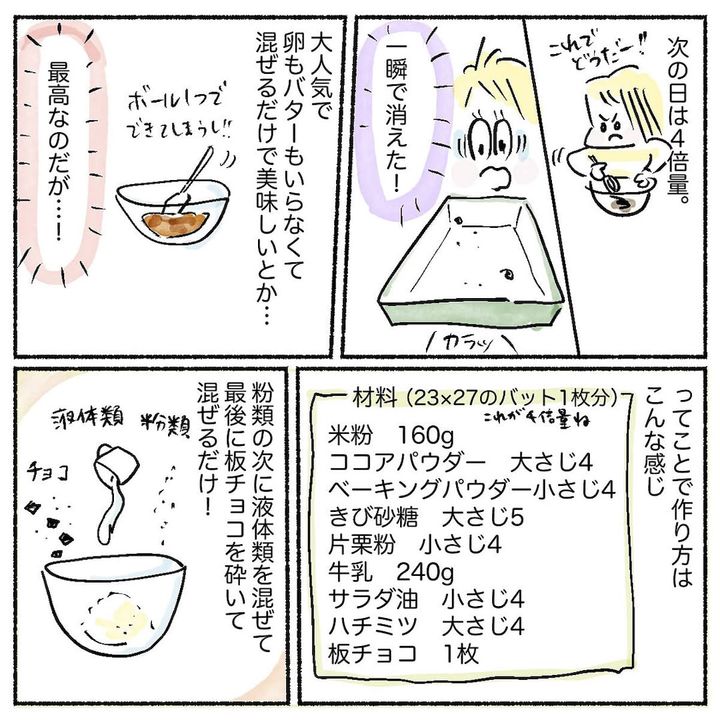 次の日は4倍量。
これで
どうだー!!
一瞬で消えた!
カラッ
大人気で
卵もバターもいらなくて
混ぜるだけで美味しいとか…
ボール1つで
できてしまうし!!
最高なのだが…!
ってことで作り方は
こんな感じ
材料（23×27のバット1枚分）
これが4倍量ね
米粉　160g
ココアパウダー　大さじ4
ベーキングパウダー小さじ4
きび砂糖　大さじ5
片栗粉　小さじ4
牛乳　240g
サラダ油　小さじ4
ハチミツ　大さじ4
板チョコ　1枚
粉類の次に液体類を混ぜて
最後に板チョコを砕いて
混ぜるだけ!
粉類
液体類
チョコ